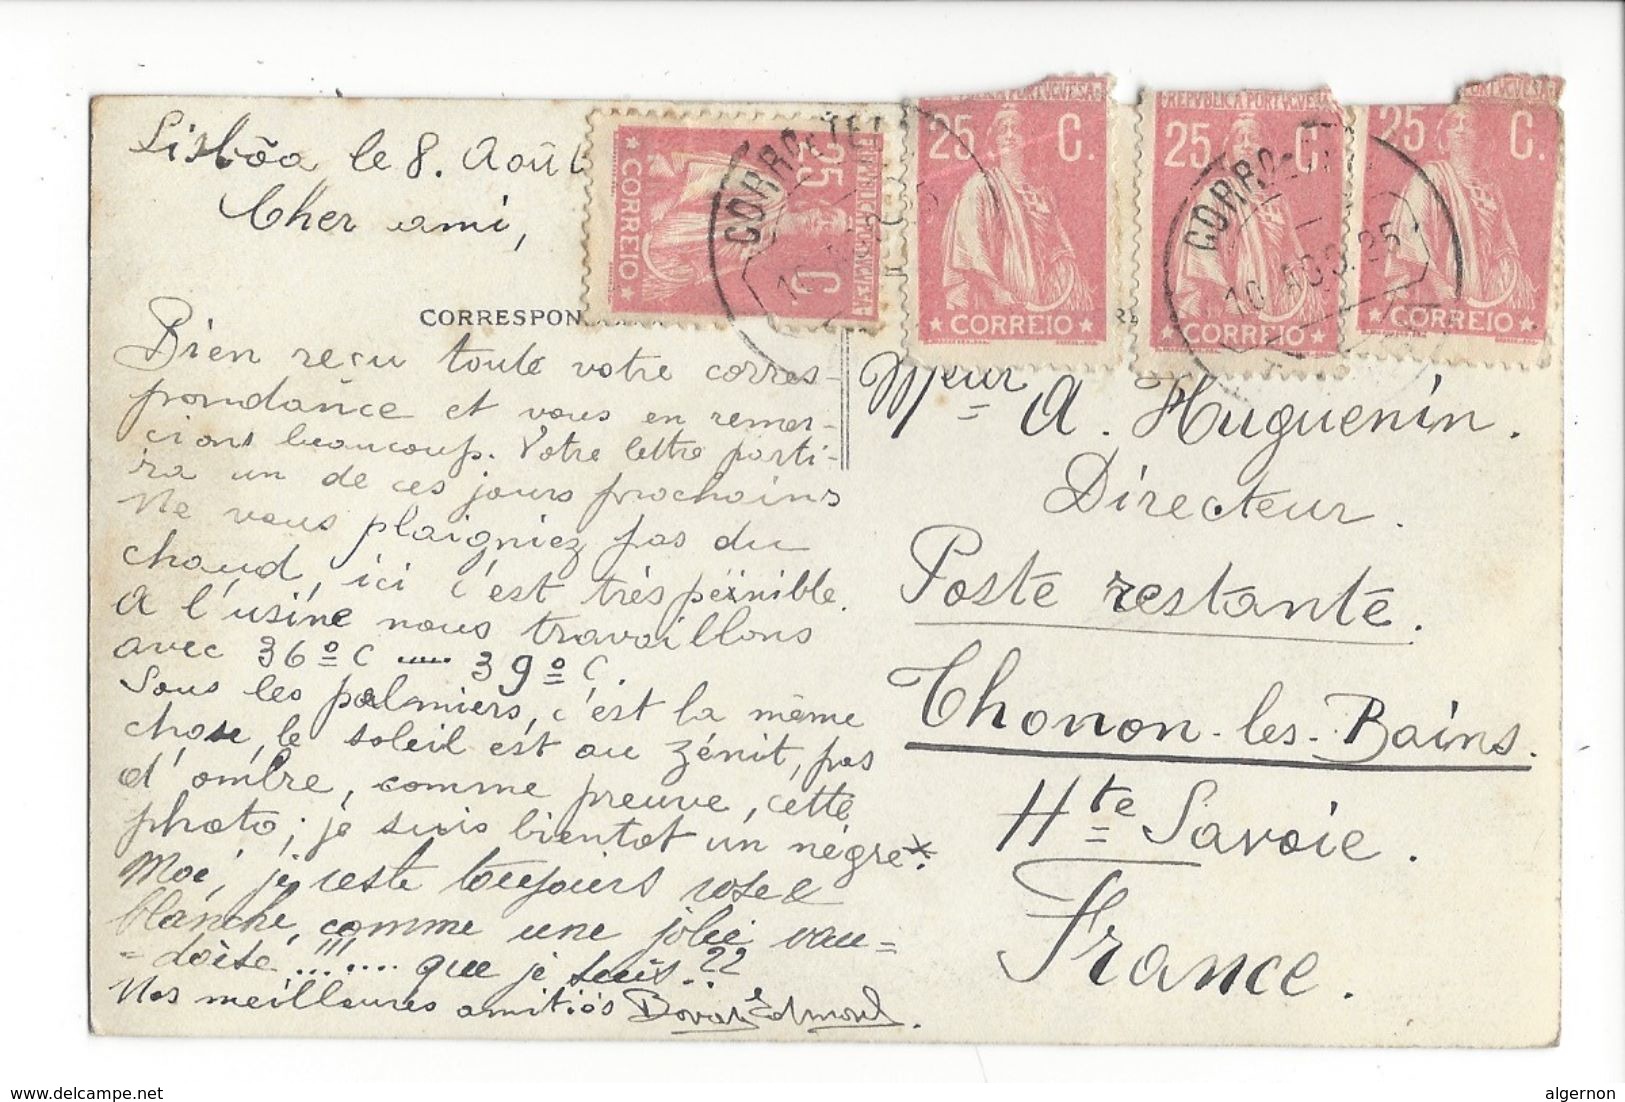 Lisbôa le 8. Août
Cher ami,
CORRESPON
Bien reçu toute votre corres-
pondance et vous en remer-
cions beaucoup. Votre lettre parti-
ra un de ces jours prochains
Ne vous plaigniez pas du
chaud, ici c'est très pëinible.
A l'usine nous travaillons
avec 36º C ..... 39º C.
Sous les palmiers, c'est la même
chose, le soleil est au zénit, pas
d'ombre, comme preuve, cette
photo; je suis bientot un négre.
Moi, je reste toujours rose &
blanche, comme une jolie vau-
-doise !!!.... que je suis..??
Nos meilleures amitiés Bovat Edmond.
CORREIO
25 C.
REPVBLICA PORTVGVESA
25 C.
CORREIO
REPVBLICA PORTVGVESA
25 C.
CORREIO
PORTVGVESA
25 C.
CORREIO
10 AGO. 25
Mr eur A. Huguenin.
Directeur.
Poste restante.
Thonon-les-Bains.
Hte Savoie.
France.
www.delcampe.net
algernon